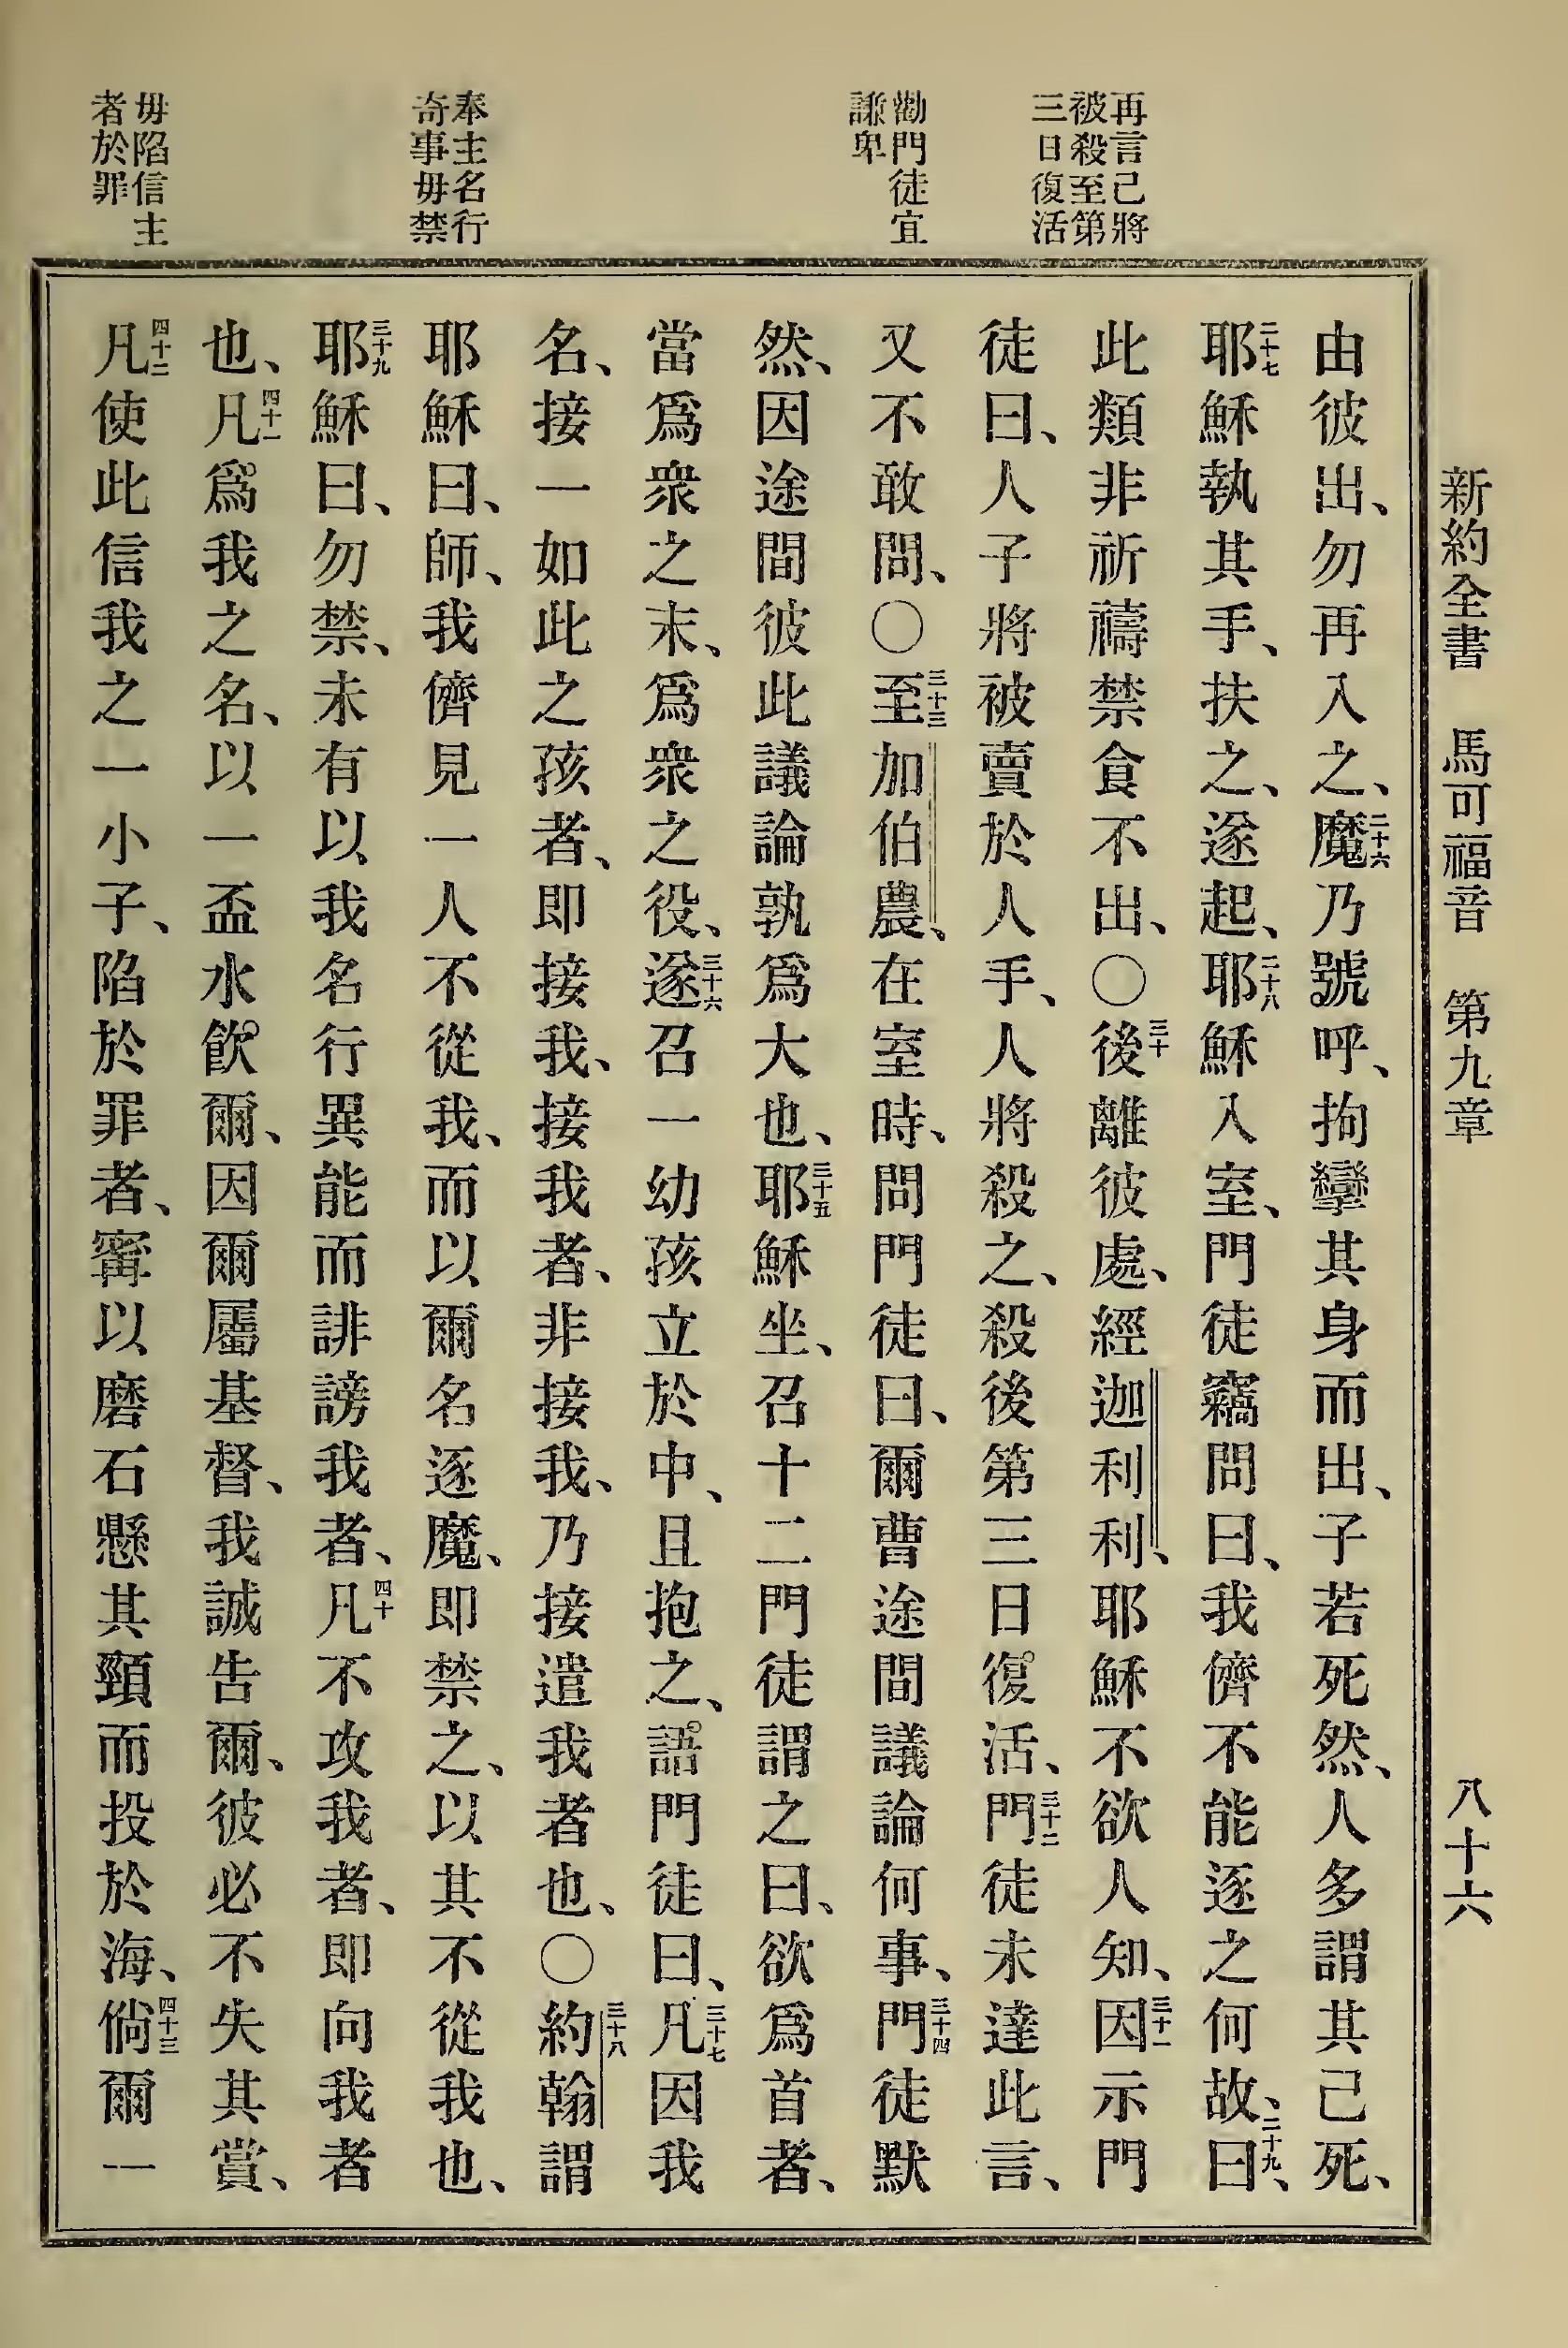 新約全書 馬可福音 第九章 八十六
再言己將
被殺至第
三日復活
勸門徒宜
謙卑
奉主名行
奇事毋禁
毋陷信主
者於罪
由彼出、勿再入之、二十六魔乃號呼、拘攣其身而出、子若死然、人多謂其已死、
二十七耶穌執其手、扶之、遂起、二十八耶穌入室、門徒竊問曰、我儕不能逐之何故、二十九曰、
此類非祈禱禁食不出、〇三十後離彼處、經迦利利、耶穌不欲人知、三十一因示門
徒曰、人子將被賣於人手、人將殺之、殺後第三日復活、三十二門徒未達此言、
又不敢問、〇三十三至加伯農、在室時、問門徒曰、爾曹途間議論何事、三十四門徒默
然、因途間彼此議論孰爲大也、三十五耶穌坐、召十二門徒謂之曰、欲爲首者、
當爲衆之末、爲衆之役、三十六遂召一幼孩立於中、且抱之、語門徒曰、三十七凡因我
名、接一如此之孩者、即接我、接我者、非接我、乃接遣我者也、〇三十八約翰謂
耶穌曰、師、我儕見一人不從我、而以爾名逐魔、即禁之、以其不從我也、
三十九耶穌曰、勿禁、未有以我名行異能而誹謗我者、四十凡不攻我者、即向我者
也、四十一凡爲我之名、以一盃水飲爾、因爾屬基督、我誠告爾、彼必不失其賞、
四十二凡使此信我之一小子、陷於罪者、寗以磨石懸其頸而投於海、四十三倘爾一